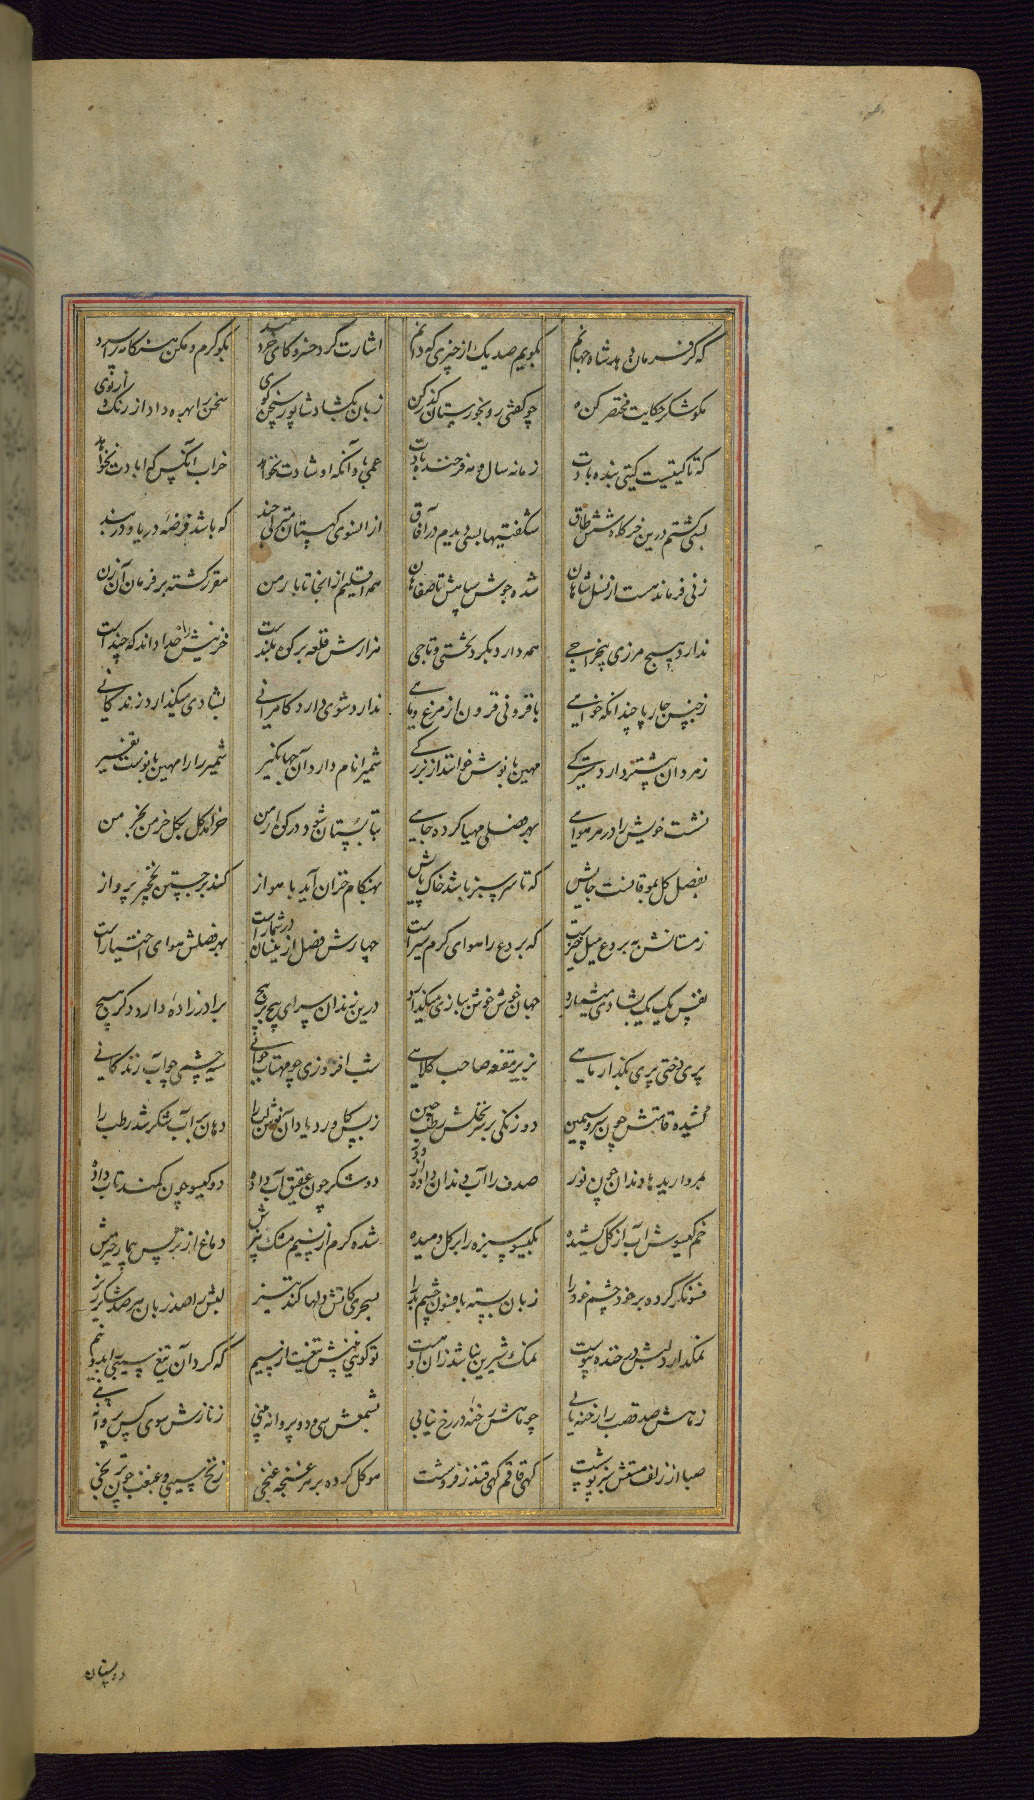 که گر فرمان دهد شاه جهانم بگویم صد یک از چیزی که دانم اشارت کرد خسرو کای خردمند بگو گرم و مکن هنگامه را سرد
مگو شکر حکایت مختصر کن چو گفتی رو بخوزستان گذر کن زبان بگشاد شاپور سخن گوی سخن را بهره داد از رنگ و از بوی
که تا گیتیست گیتی بنده بادت زمانه سال و مه فرخنده بادت غمی باد آنکه او شادت نخواهد خراب آنکس که ابادت نخواهد
بسی گشتم درین خرگاه شش طاق شگفتیها بسی دیدم در آفاق از آنسوی کهستان منزلی چند که باشد فرضهٔ دریا و دربند
زنی فرماندهست از نسل شاهان شده جوش سپاهش تا صفاهان همه اقلیم از انجا تا بارمن مقرر گشته بر فرمان آن زن
ندارد هیچ مرزی بی خراجی همه دارد مگر تختی و تاجی هزارش قلعه بر کوه بلندست خزینش را خدا داند که چندست
ز جنس چارپا چندانکه خواهی بافزونی فزون از مرغ و ماهی ندارد شوی و دارد کامرانی بشادی میگذارد زندگانی
ز مردان بیشتر دارد سترکی مهین بانوش خوانند از بزرکی شمیرا نام دارد آن جهانگیر شمیرا را مهین بانوست تفسیر
نشست خویش را در هر هوایی بهر فصلی مهیا کرده جایی بتابستان شود در کوه ارمن خرامد گل بگل خرمن بخرمن
بفصل گل بموقانست جایش که تا سرسبز باشد خاک پایش بهنگام خزان آید بابخاز کند بر جستن نخچیر پرواز
زمستانش به بردع میل خیزست که بردع را هوای گرمسیرست چهارش فصل ازینسان در شمارست بهر فصلش هوای اختیارست
نفس یک یک بشادی میشمارد جهان خوش خوش ببازی میگذارد درین زندان سرای پیچ بر پیچ برادرزادهٔ دارد دگر هیچ
پری دختی پری بگذار ماهی بزیر مقنعه صاحب کلاهی شب افروزی چو مهتاب جوانی سیه چشمی چو آب زندگانی
کشیده قامتش چون سرو سیمین دو زنگی بر سر نخلش رطب چین ز بس کاورد یاد آن نوش لب را دهان پر آب شکر شد رطب را
بمرواریدها دندان چون نور صدف را آب دندان داده از دور دو شکر چون عقیق آب داده دو گیسو چون کمند تاب داده
خم گیسوش آب از گل کشیده بگیسو سبزه را بر گل دمیده شده گرم از نسیم مشک بیزش دماغ از نرگس بیمار خیزش
فسونگر کرده بر خود چشم خود را زبان بسته بافسون چشم بد را بسحری کاتش دلها کند تیز لبش را صد زبان هر صد شکر ریز
نمکدار دلبش در خنده پیوست نمک شیرین نباشد زان او هست تو گویی بینیش تیغیست از سیم که کرد آن تیغ سیبی را بدو نیم
ز ماهش صد قصب را رخنه یابی چو ماهش رخنه در رخ نیابی بشمعش بر سی و دو پروانه بینی ز نازش سوی کس پروا نه بینی
صبا از زلف مستش سر بر پشت گهی قاقم گهی قندز فروشست موکل کرده بر هر غنچه غنجی زنخ سیبی و غبغب چون ترنجی
دو پستان